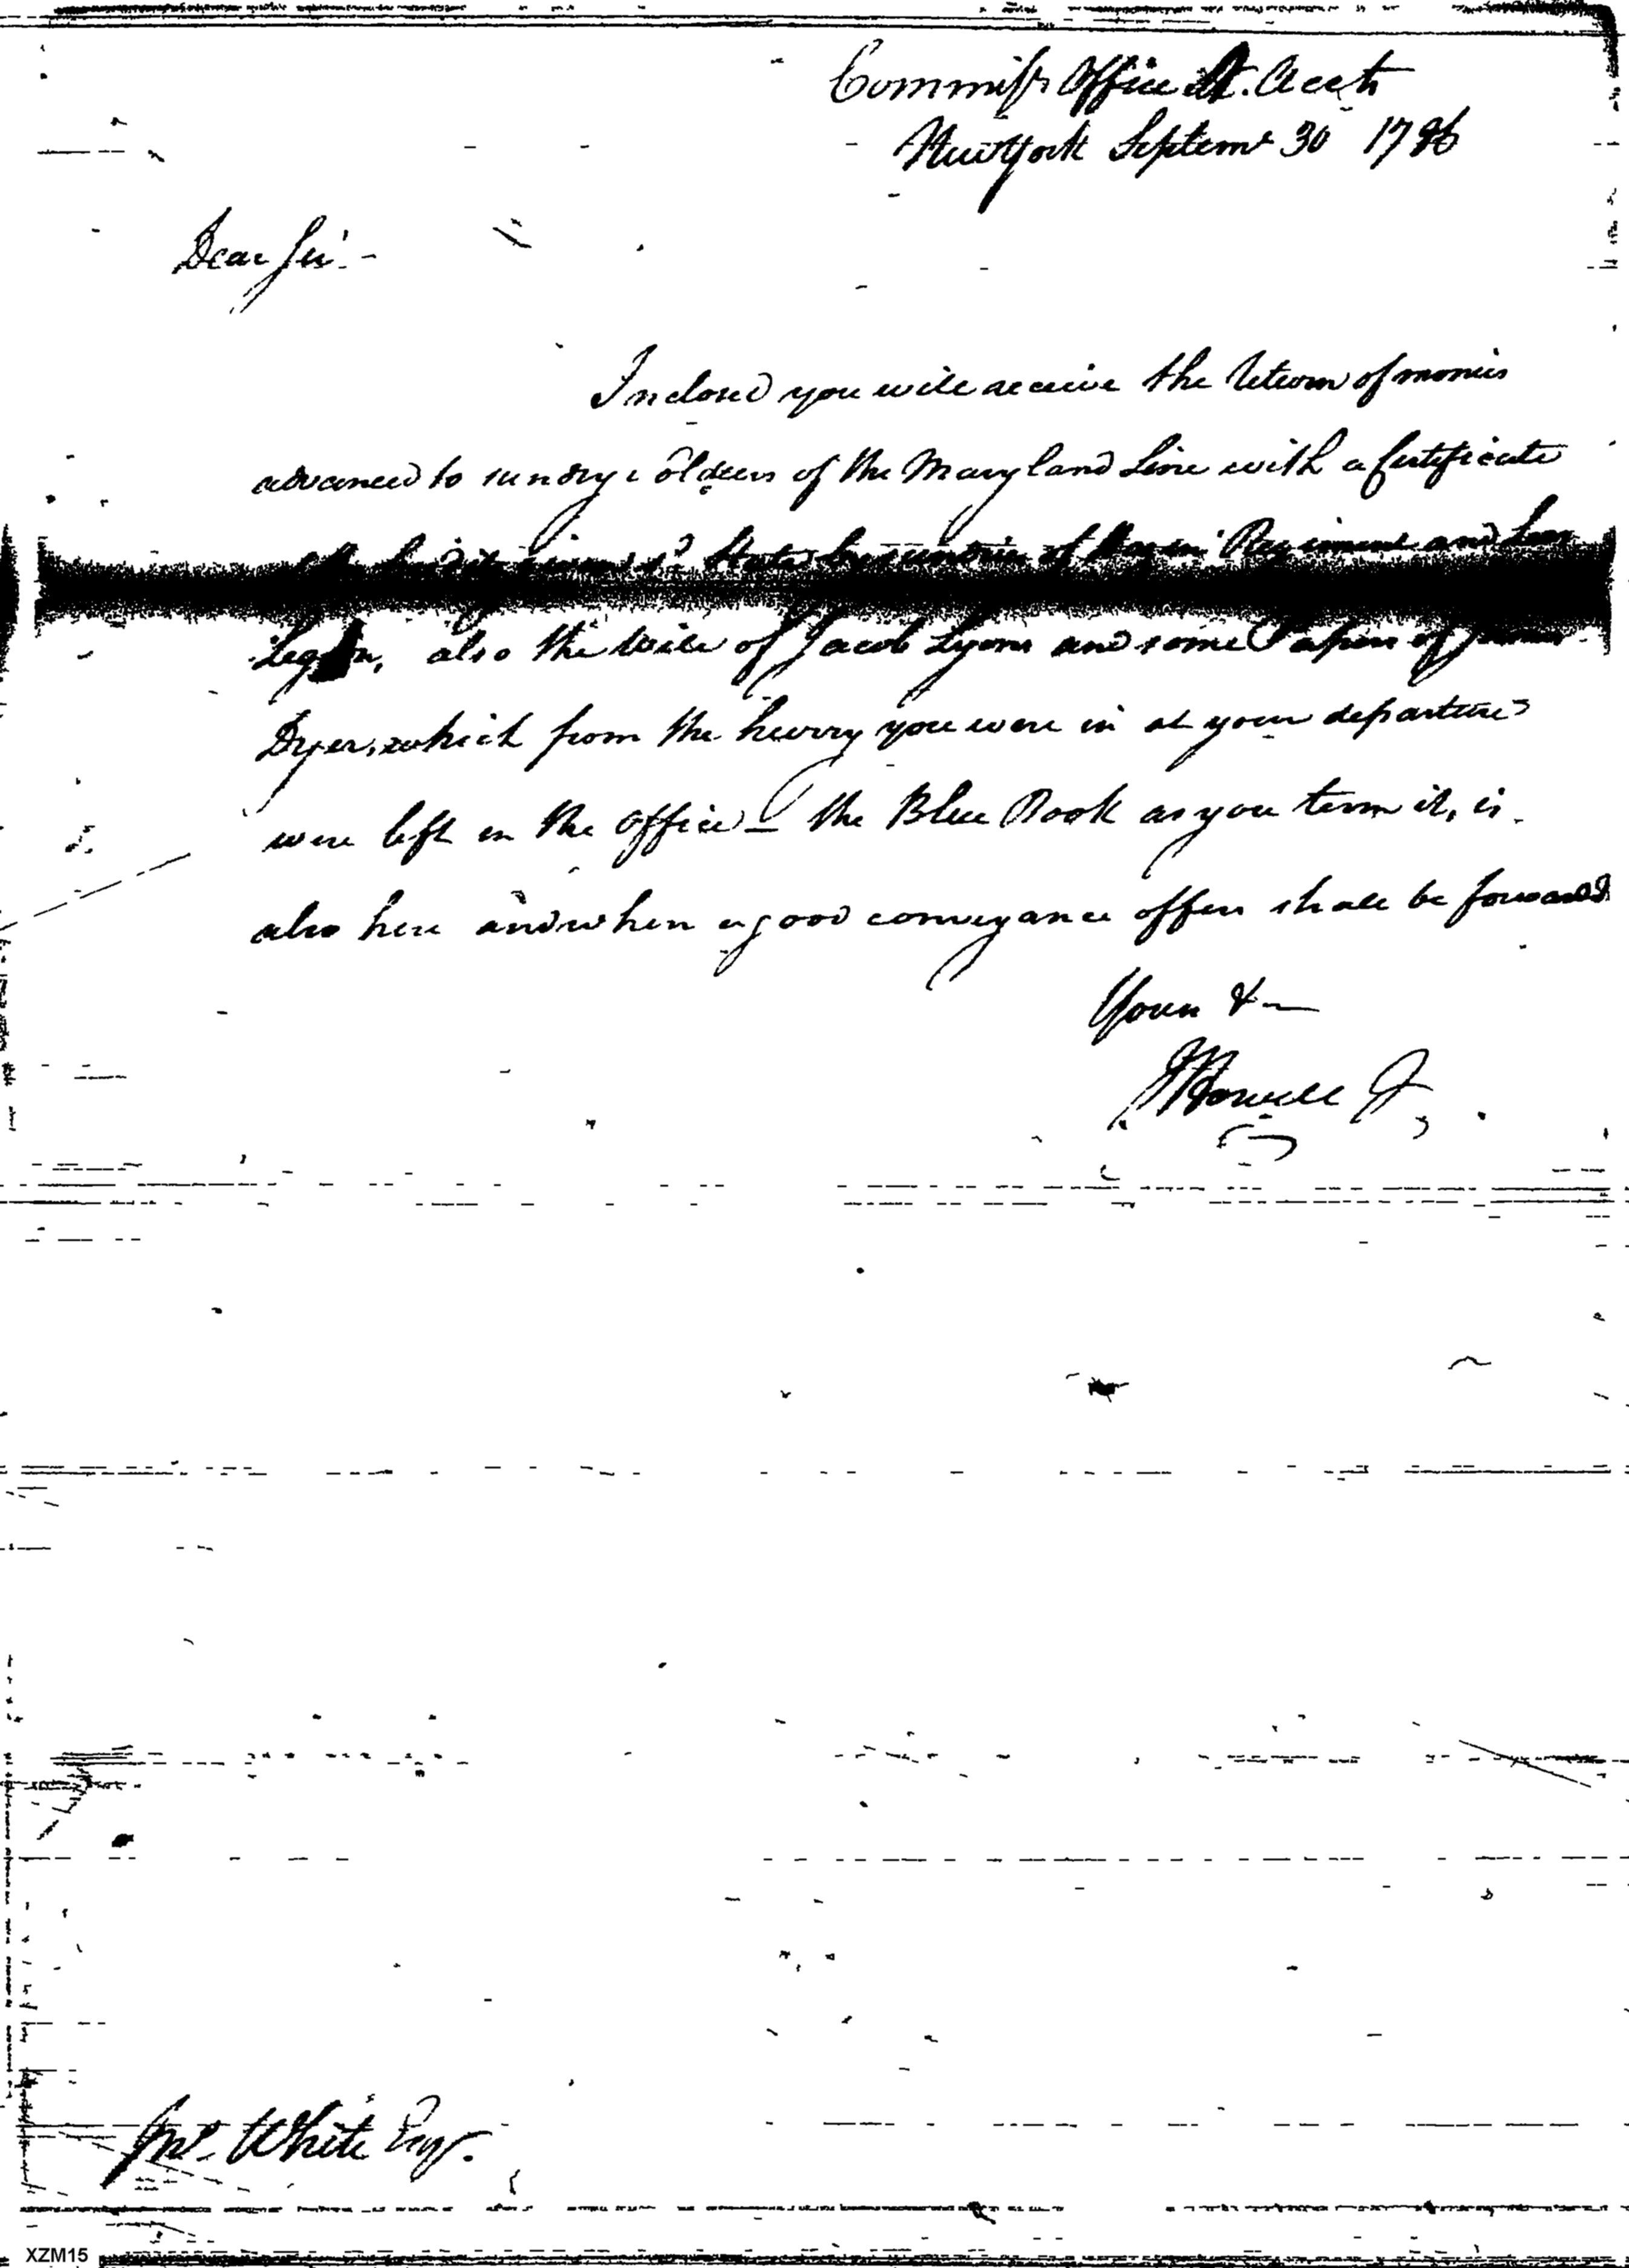 Commiss Office A. Accts
New York Septemr 30 1786
Dear Sir! -
Inclosed you will receive the Return of monies
advanced to sundry soldiers of the Maryland Line with a Certificate
State of Regiment and Lees
Legion, also the Will of Jacob Lyons and some Papers of James
Dyer, which from the hurry you were in at your departure
were left in the Office - the Blue Book as you term it, is
also here and when a good conveyance offers shall be forward
Yours &-
JHowell Jr
Jno. White Esqr.
XZM15